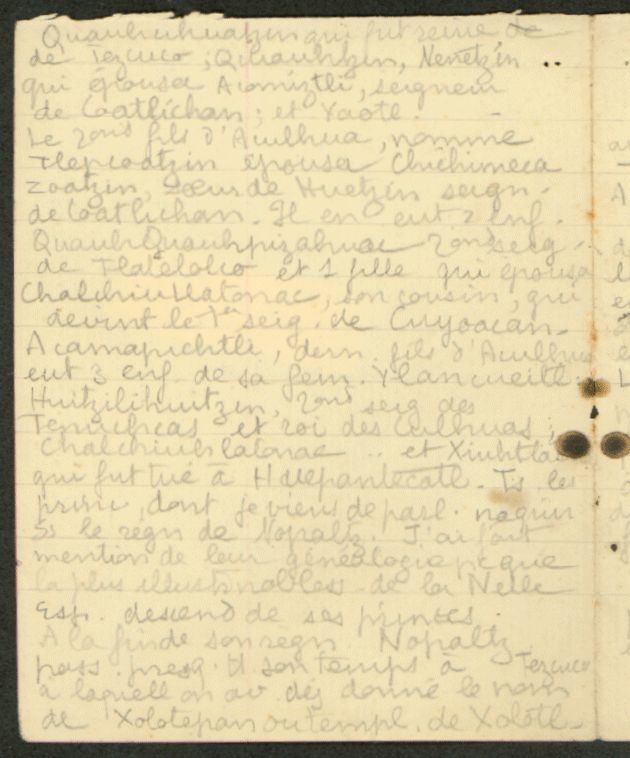 Quauhcihuatzin qui fut reine de
de Tezcuco ; Quauhtzin, Nenetzin ..
qui épousa Acomiztli, seigneur
de Coatlichan ; et Yaotl.
Le 2ond fils d'Aculhua, nommé
Tlepcoatzin épousa Chichimeca
zoatzin, sœur de Huetzin seign-
de Coatlichan. Il en eut 2 enf.
Quauh Quauhpizahuac 2ond seig
de Tlatelolco et 1 fille qui épousa
Chalchiutlatonac, son cousin, qui
devint le 1er seig. de Cuyoacan-
Acamapichtli, dern. fils d'Aculhua
eut 3 enf de sa fem. Ylancueitl.
Huitzilihuitzin, 2ond seig des
Tenuchcas et roi des Culhuas ;
Chalchiuhtlatonac .. et Xiuhtla
qui fut tué à Huepantecatl. Ts les
princ, dont je viens de parl. naquir
Ss le règn de Nopaltz. J'ai fait
mention de leur généalogie pcque
la plus illust. nobless de la Nelle
Esp. descend de ses princes.
A la fin de son règn Nopaltz
pass. presq. tt son temps à Tezcuco
à laquell on av. déj donné le nom
de Xolotepan ou templ. de Xolotl-